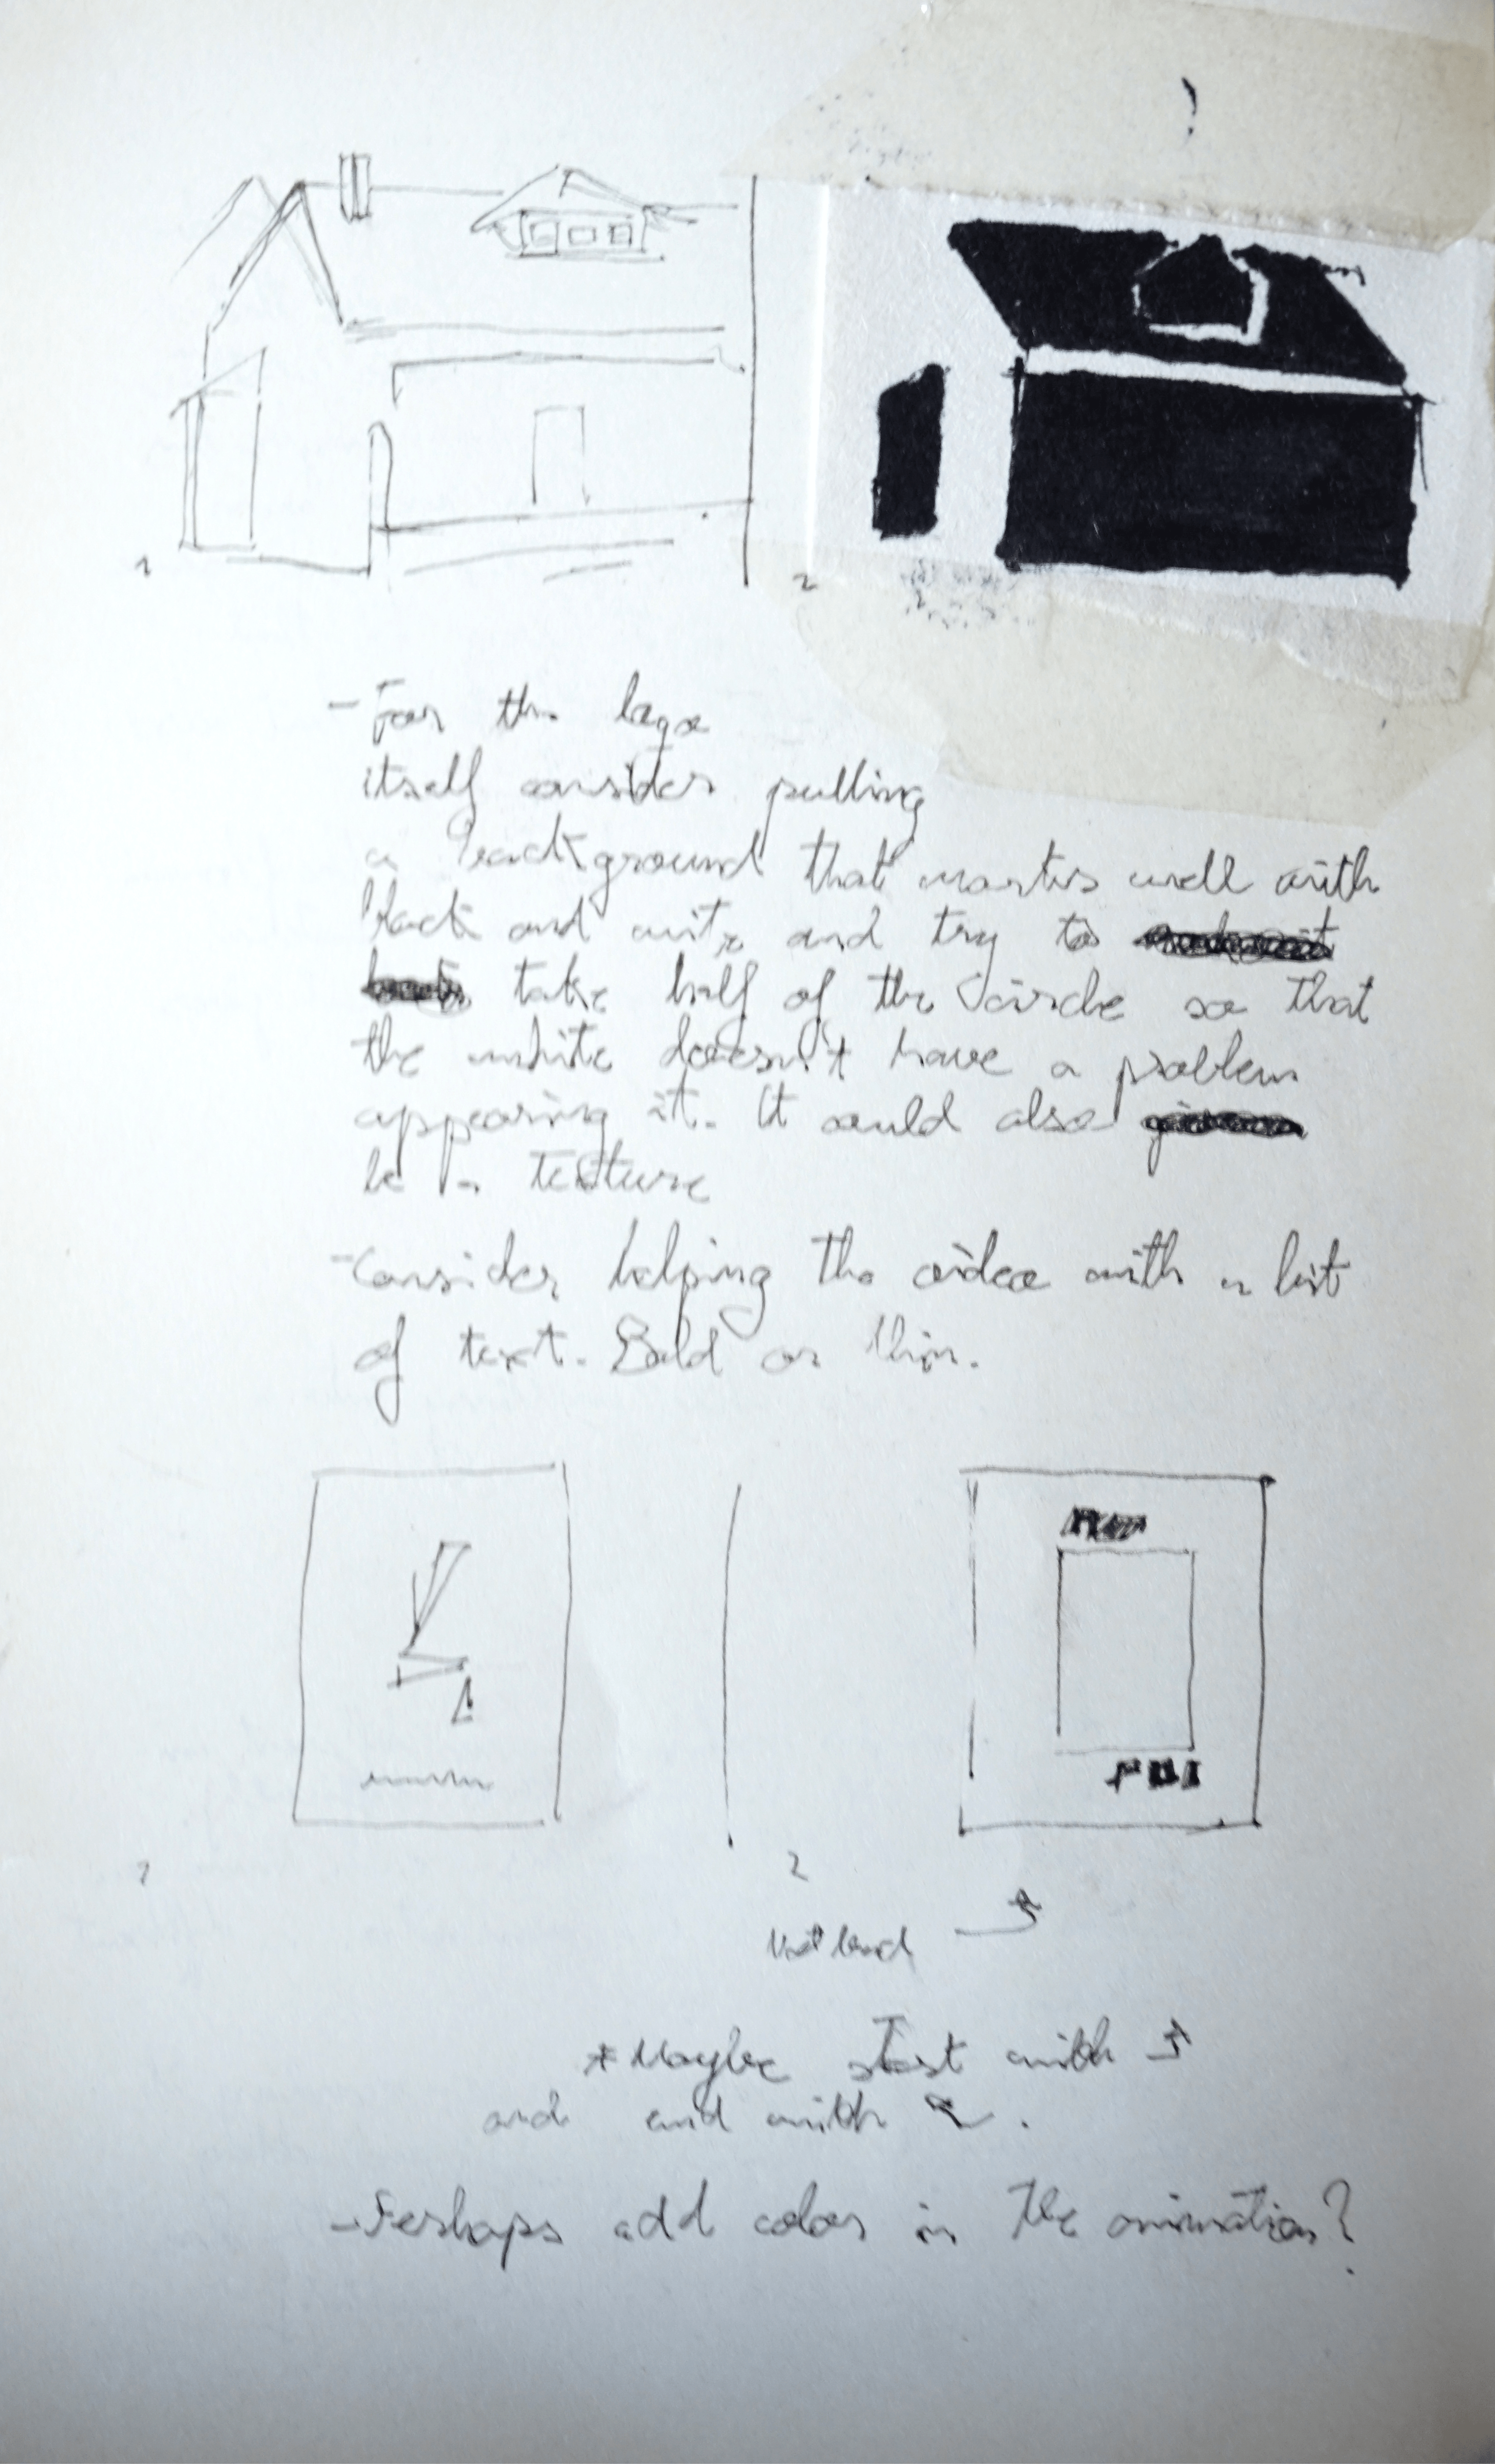 1
2
- For the logo
itself consider pulling
a background that wortks well with
black and wite and try to
take half of the circle so that
the white doesn't have a problem
appearing it. It could also
be a texture
- Consider helping the video with a bit
of text. Bold or thin.
1
2
* Maybe start with
and end with .
- Perhaps add color in the animation?